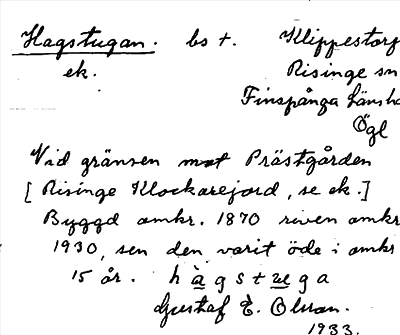 Hagstugan. bs t. Klippestorp
ek. Risinge sn
Finspånga länsh
Ögl
Vid gränsen mot Prästgården
[Risinge Klockarejord, se ek.]
Byggd omkr. 1870 riven omkr
1930, sen den varit öde i omkr
15 år. hàgstuga
Gustaf E. Olsson.
1933.